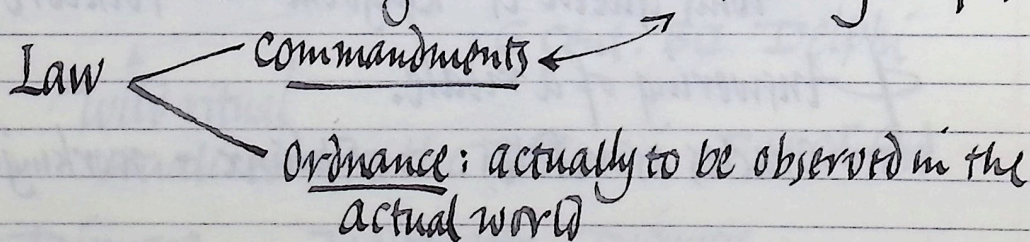 Law
commandments
Ordnance: actually to be observed in the
actual world